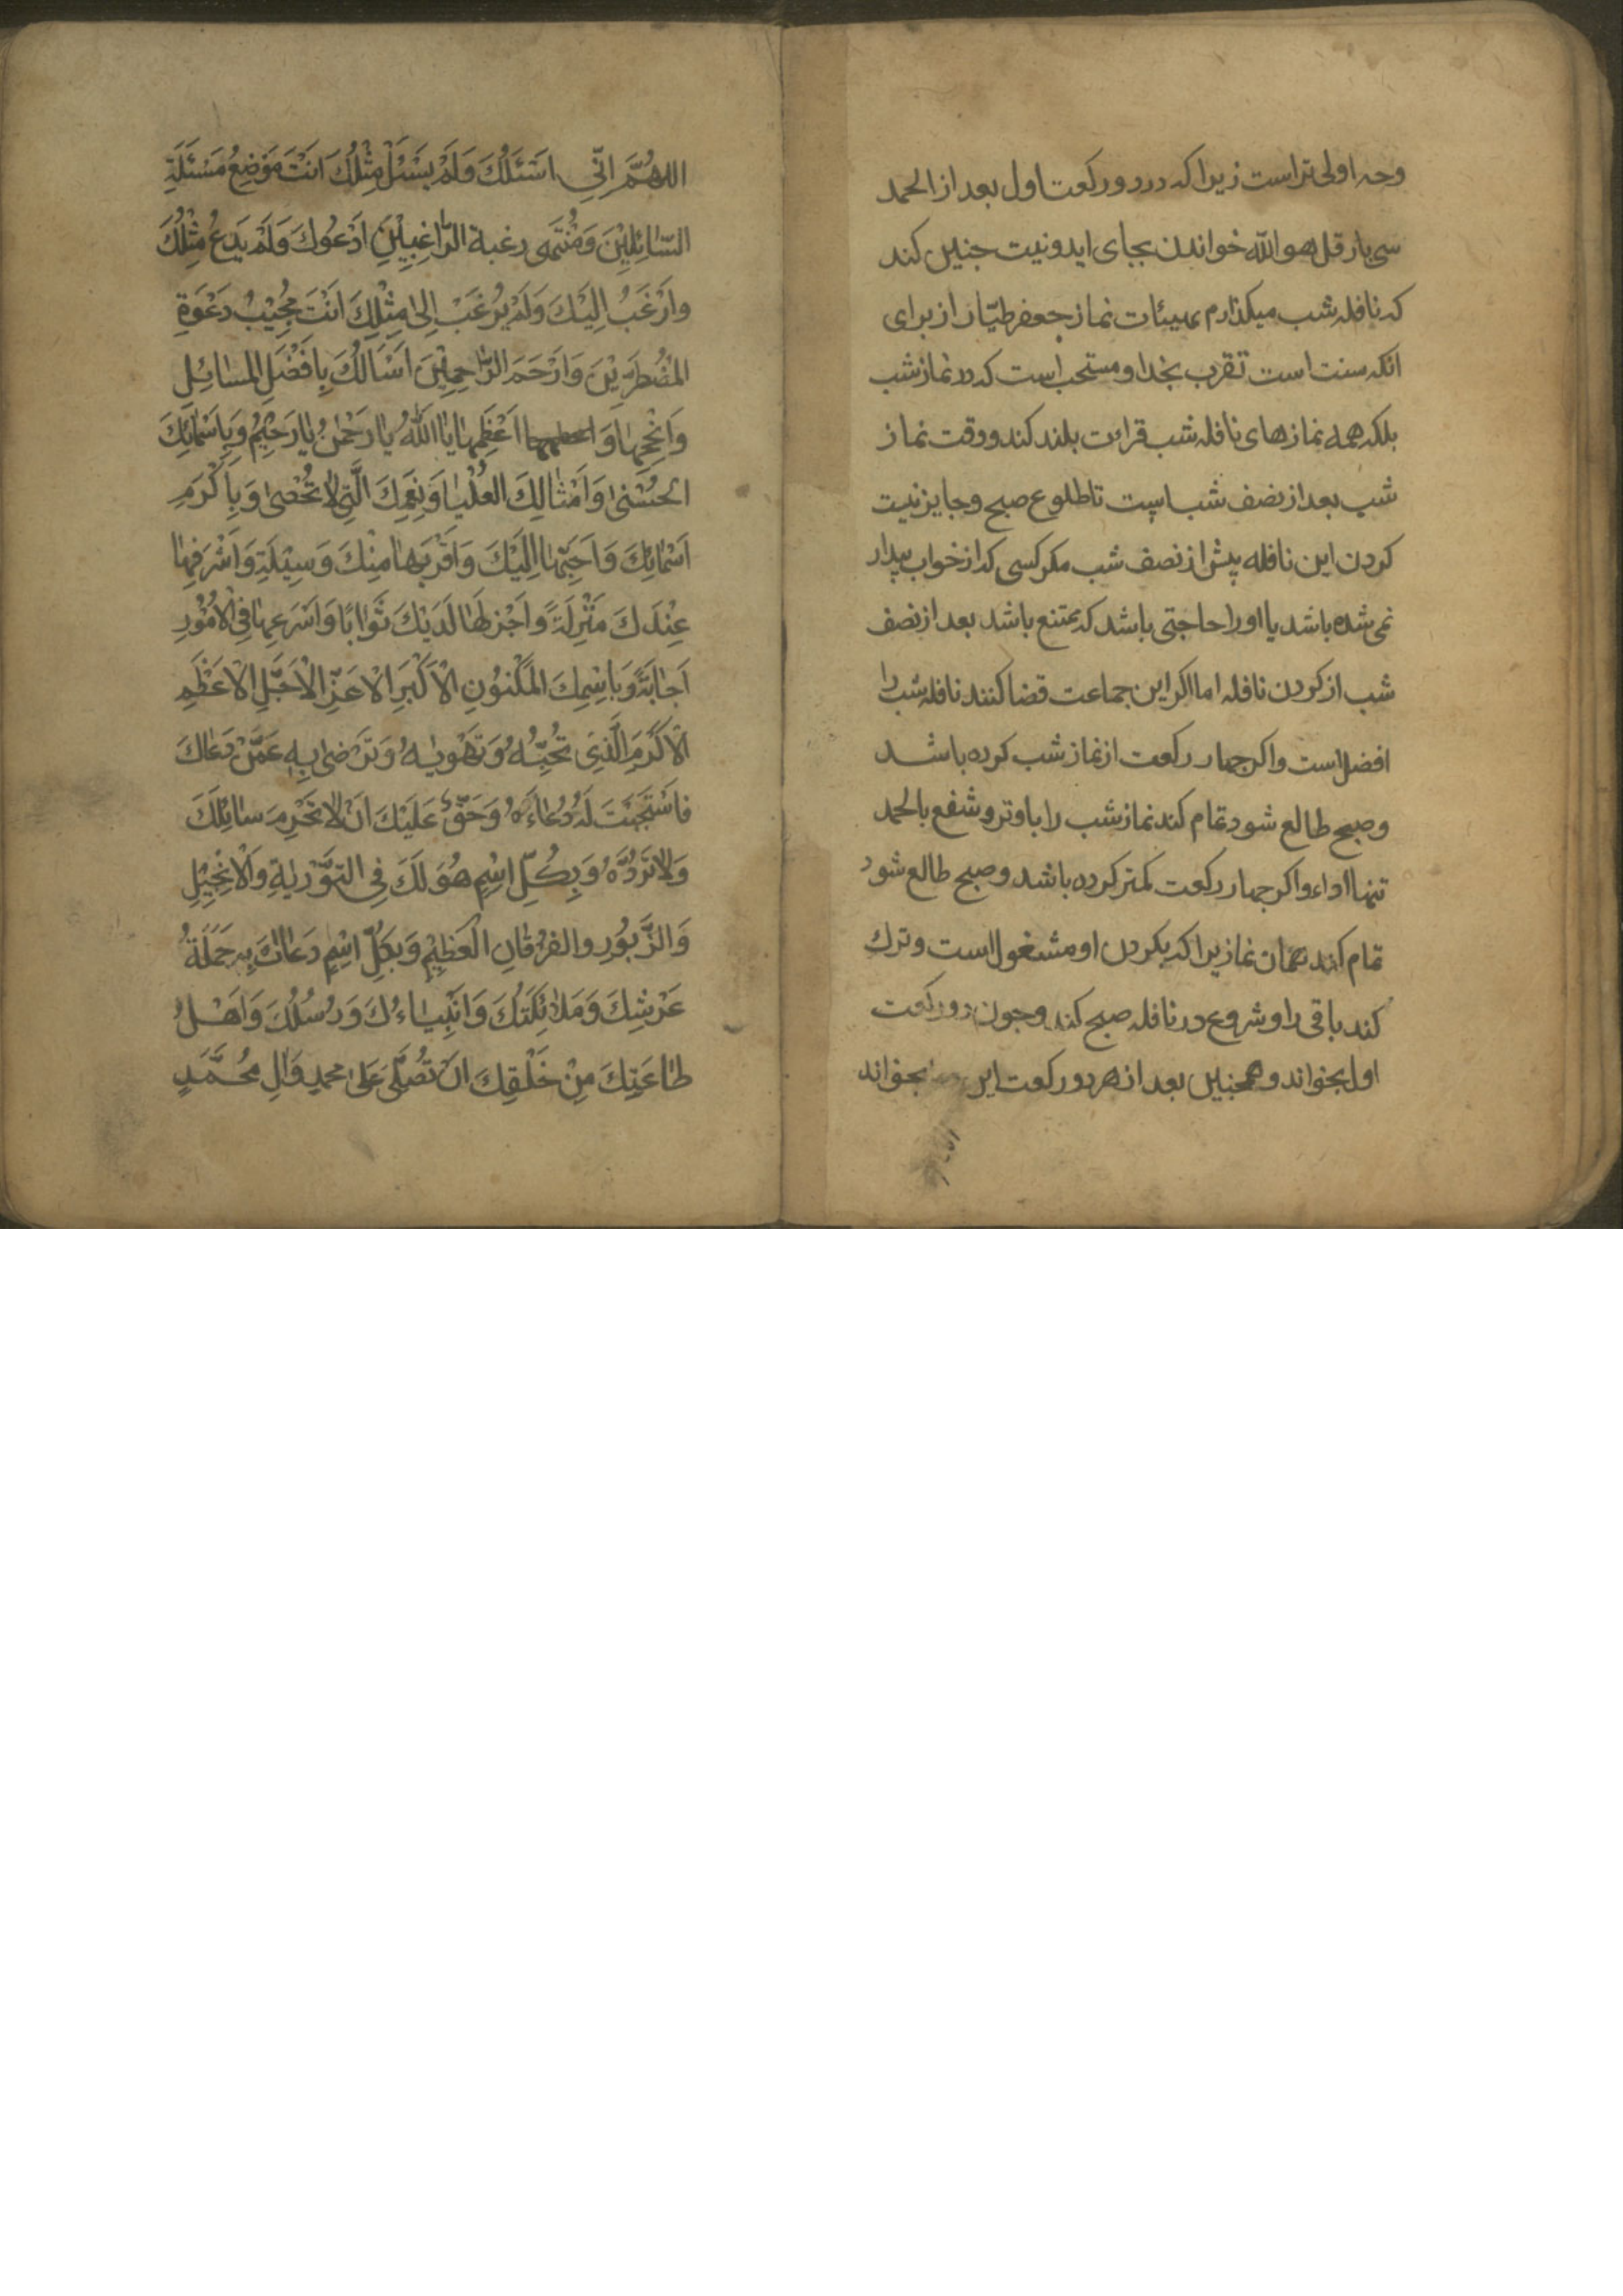 وجه اولی تراست زیرا که در دو رکعت اول بعد از الحمد
سی بار قل هو الله خواندن بجای اید و نیت جنین کند
که نافله شب میکذارم بهیئات نماز جعفر طیّار از برای
انکه سنت است تقرب بخدا و مستحب است که در نماز شب
بلکه همه نمازهای نافله شب قرائت بلند کند و وقت نماز
شب بعد از نصف شب است تا طلوع صبح و جایز نیست
کردن این نافله پیش از نصف شب مکر کسی که از خواب بیدار
نمی شده باشد یا او را حاجتی باشد که ممتنع باشد بعد از نصف
شب از کردن نافله اما اکر این جماعت قضا کنند نافله شب را
افضل است و اکر جهار رکعت از نماز شب کرده باشد
و صبح طالع شود تمام کند نماز شب را با وتر و شفع بالحمد
تنها اداء و اکر جهار رکعت کمتر کرده باشد و صبح طالع شود
تمام کند همان نماز یرا که بکردن او مشغول است و ترك
کند باقی را و شروع در نافله صبح کند و جون دو رکعت
اول بخواند و همجنین بعد از هر دو رکعت این بخواند
اللهُمَّ اِنّي اَسْئَلُكَ وَلَمْ يُسْئَلْ مِثْلُكَ اَنْتَ مَوْضِعُ مَسْئَلَةِ
السّائِلِيْنَ وَمُنْتَهى رغبة الرّاغِبِيْنَ اَدْعُوكَ وَلَمْ يَدْعُ مِثْلُكَ
وارْغَبُ اِلَيْكَ وَلَمْ يُرْغَبْ اِلىٰ مِثْلِكَ اَنْتَ مُجِيْبُ دَعْوَةِ
المُضْطَرِّيْنَ وَاَرْحَمَ الرّاحِمِيْنَ اَسْاَلُكَ بِاَفْضَلِ المَسائِلِ
وَاَنْجَحِهٰا وَاَعْظَمِهٰا يا اَللّٰهُ يا رَحْمٰنُ يا رَحِيْمُ وَبِاَسْمائِكَ
الحُسْنىٰ وَاَمْثالِكَ العُلْيٰا وَنِعَمِكَ الَّتي لا تُحْصىٰ وَبِاَكْرَمِ
اَسْمائِكَ وَاَحَبِّهٰا اِلَيْكَ وَاَقْرَبِهٰا مِنْكَ وَسِيْلَةً وَاَشْرَفِهٰا
عِنْدَكَ مَنْزِلَةً وَاَجْزَلِهٰا لَدَيْكَ ثَوٰابًا وَاَسْرَعِهٰا فِي الْاُمُوْرِ
اَجٰابَةً وَبِاسْمِكَ المَكْنُوْنِ الْاَكْبَرِ الْاَعَزِّ الْاَجَلِّ الْاَعْظَمِ
الْاَكْرَمِ الَّذي تُحِبُّهُ وَتَهْوٰيهُ وَتَرْضىٰ بِهِ عَمَّنْ دَعٰاكَ
فاسْتَجَبْتَ لَهُ دُعٰاءَهُ وَحَقٌّ عَلَيْكَ اَنْ لا تَحْرِمَ سائِلَكَ
وَلا تَرُدَّهُ وَبِكُلِّ اسْمٍ هُوَ لَكَ فِي التَّوْرٰيةِ وَالْاِنْجِيْلِ
وَالزَّبُوْرِ والفُرْقانِ العَظِيْمِ وَبِكُلِّ اسْمٍ دَعٰاكَ بِهِ حَمَلَةُ
عَرْشِكَ وَمَلائِكَتُكَ وَاَنْبِيٰاءُكَ وَرُسُلُكَ وَاَهْلُ
طٰاعَتِكَ مِنْ خَلْقِكَ اَنْ تُصَلّي عَلىٰ محمدٍ وَآلِ مُحَمَّدٍ